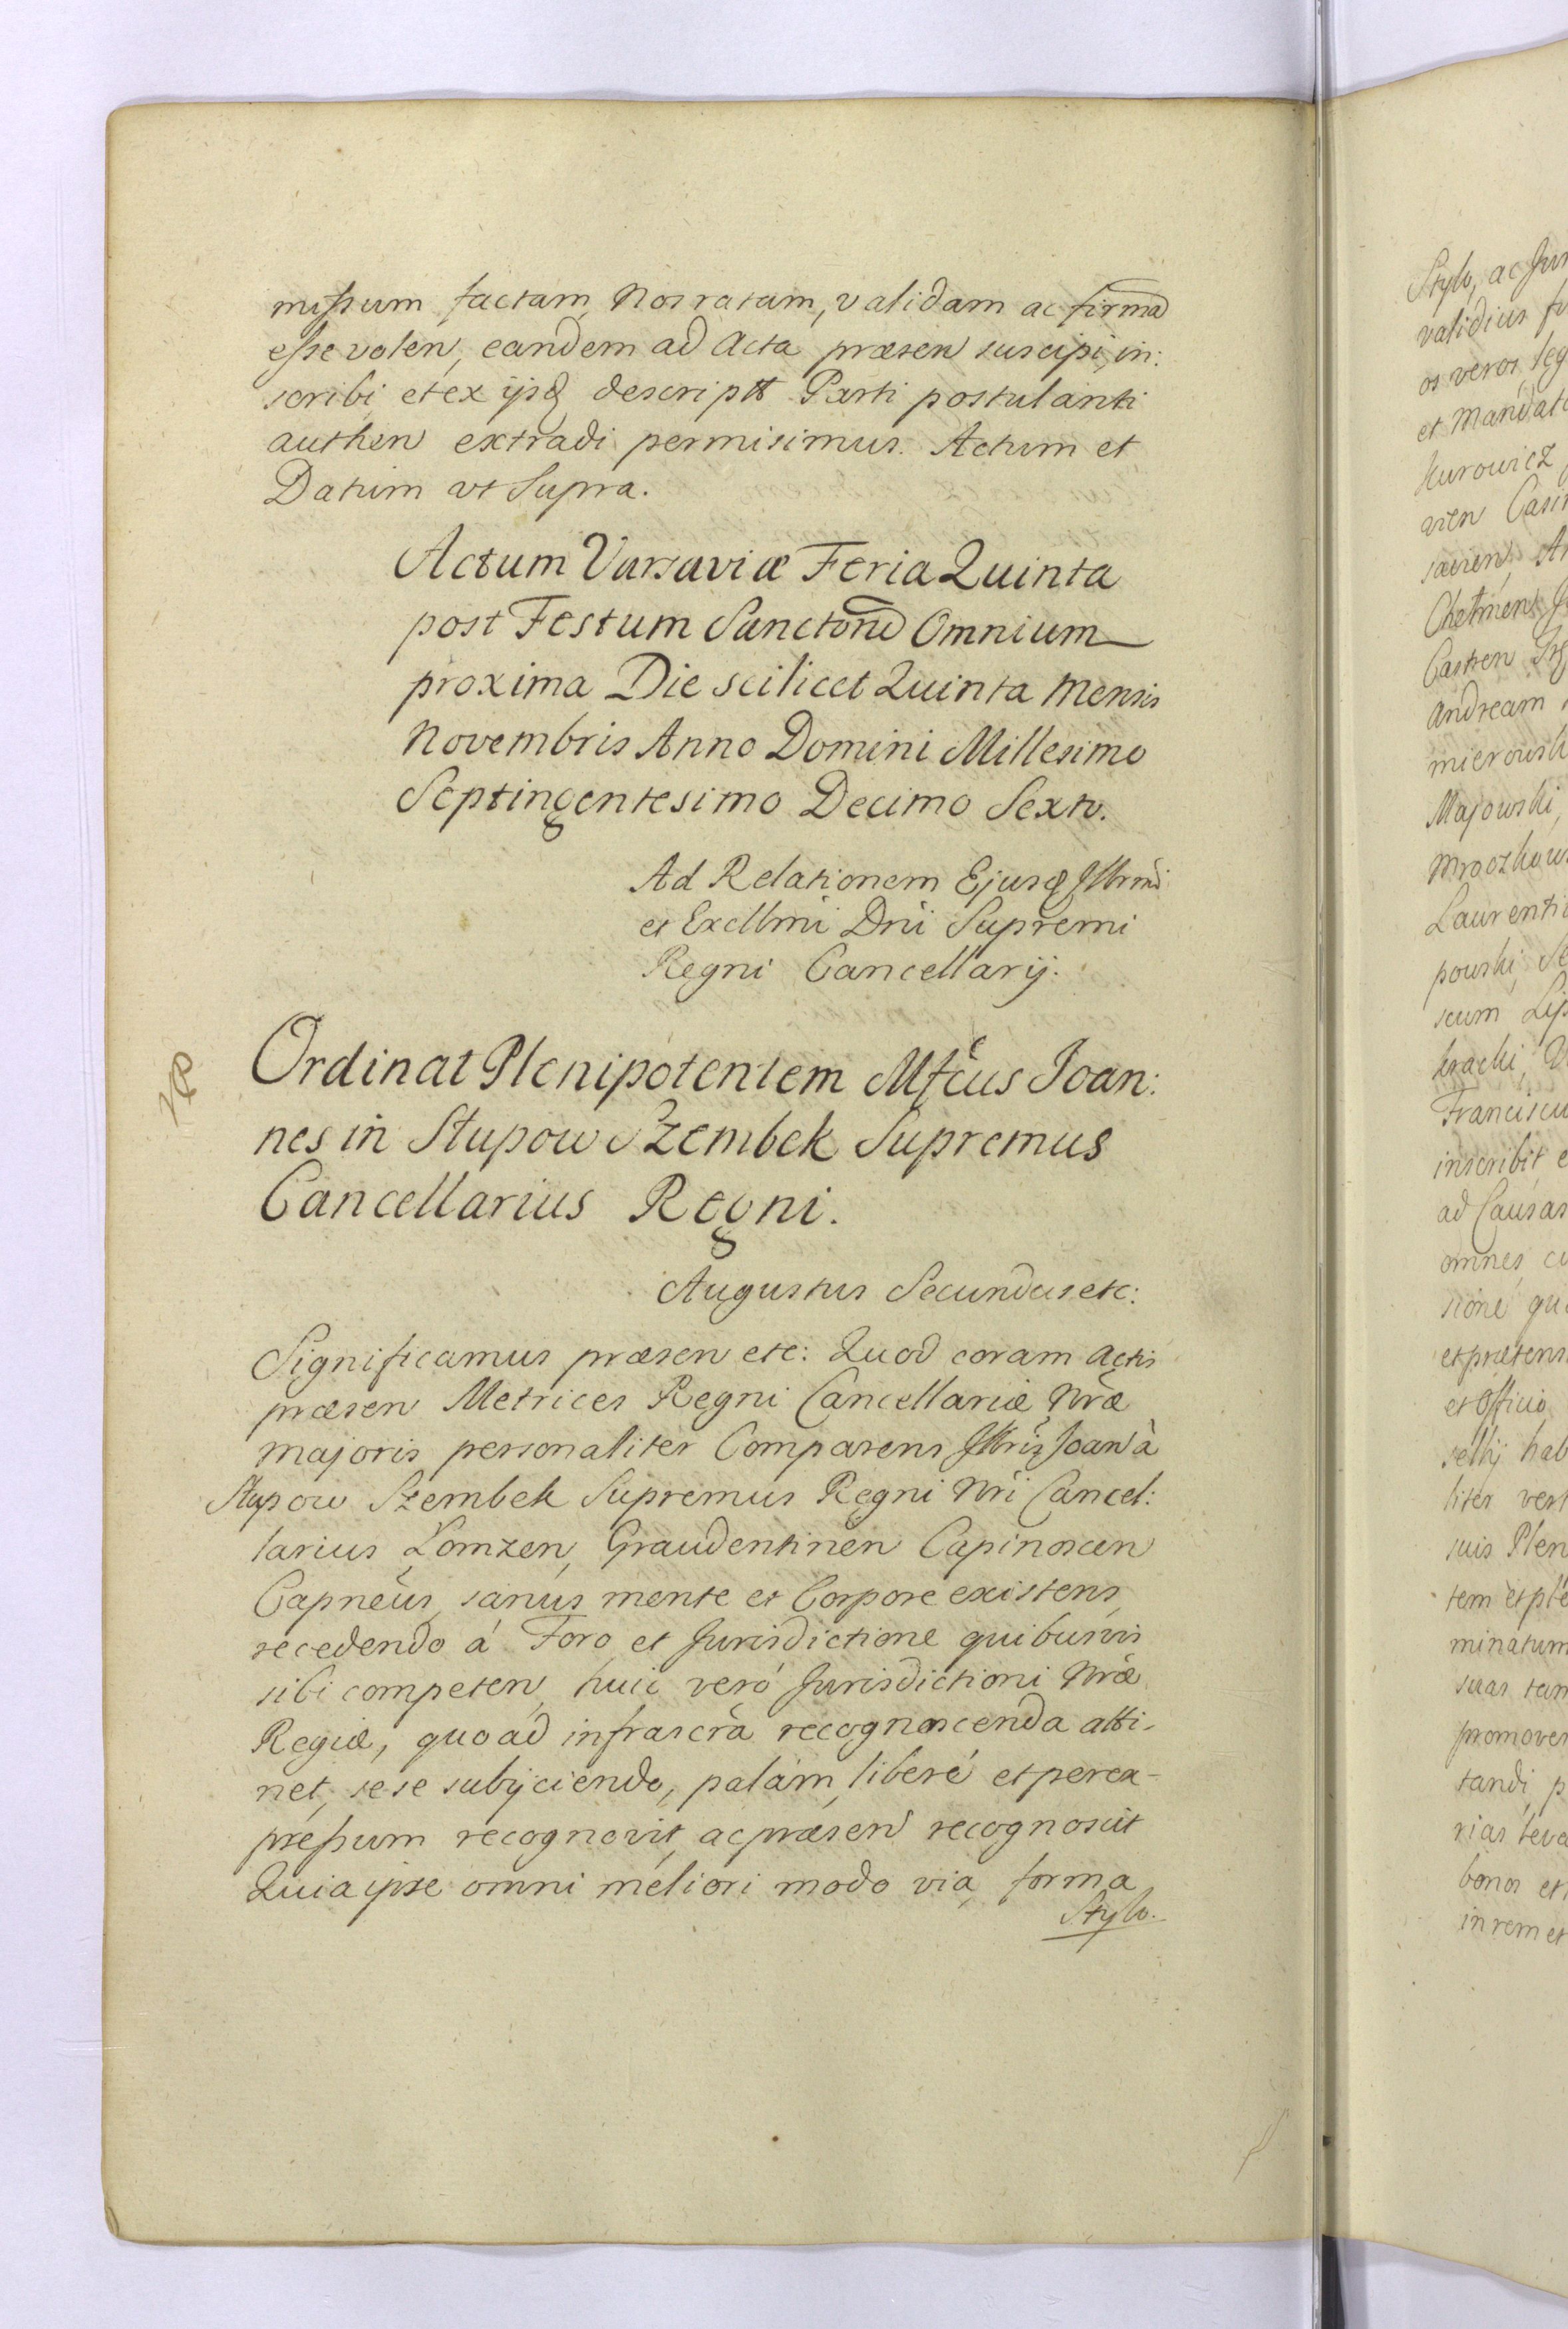 missum factam, Nos ratam, validam ac firmã
esse volen, eandem ad Acta præsen suscipi, in:
scribi et ex ijsq descriptt Parti postulanti
authen extradi permisimus. Actum et
Datum vt Supra.
Actum Varsaviæ Feria Quinta
post Festum Sanctorũ Omnium
proxima Die scilicet Quinta Mensis
Novembris Anno Domini Millesimo
Septingentesimo Decimo Sexto.
Ad Relationem Ejusq Illrmi
et Excllmi Dni Supremi
Regni Cancellarij.
Ordinat Plenipotentem Mfcus Joan:
nes in Słupow Szembek Supremus
Cancellarius Regni.
Augustus Secundus etc:
Significamus præsen etc: Quod coram Actis
præsen Metrices Regni Cancellariæ Nræ
majoris personaliter Comparens Illris Joan à
Słupow Szembek Supremus Regni Nri Cancel:
larius Łomzen, Graudentinen Capinoscen
Capneus, sanus mente et Corpore existens,
recedendo á Foro et Jurisdictione quibusvis
sibi competen, huic veró Jurisdictioni Nræ
Regiæ, quo ad infrascrà recognoscenda atti-
net, sese subijciendo, palám, liberé et perex-
pressum recognovit, ac præsen recognoscit
Quia ipse omni meliori modo via, forma
Stylo.
Stylo, ac Jur
validius fo
os veros, leg
et Mandat
Kurowicz
vien Casi
Castren
Andream
mierowsk
Majowski,
Mroczkow
Laurenti
powski, Se
scum Lip
kracki, V
Franciscu
inscribit e
ad Causas
omnes cu
sione qu
et prætens
et Officio
setkj hab
liter ver
suis Plen
tem et ple
minatum
suas tam
promover
tandi, p
rias leva
bonos et
in rem et